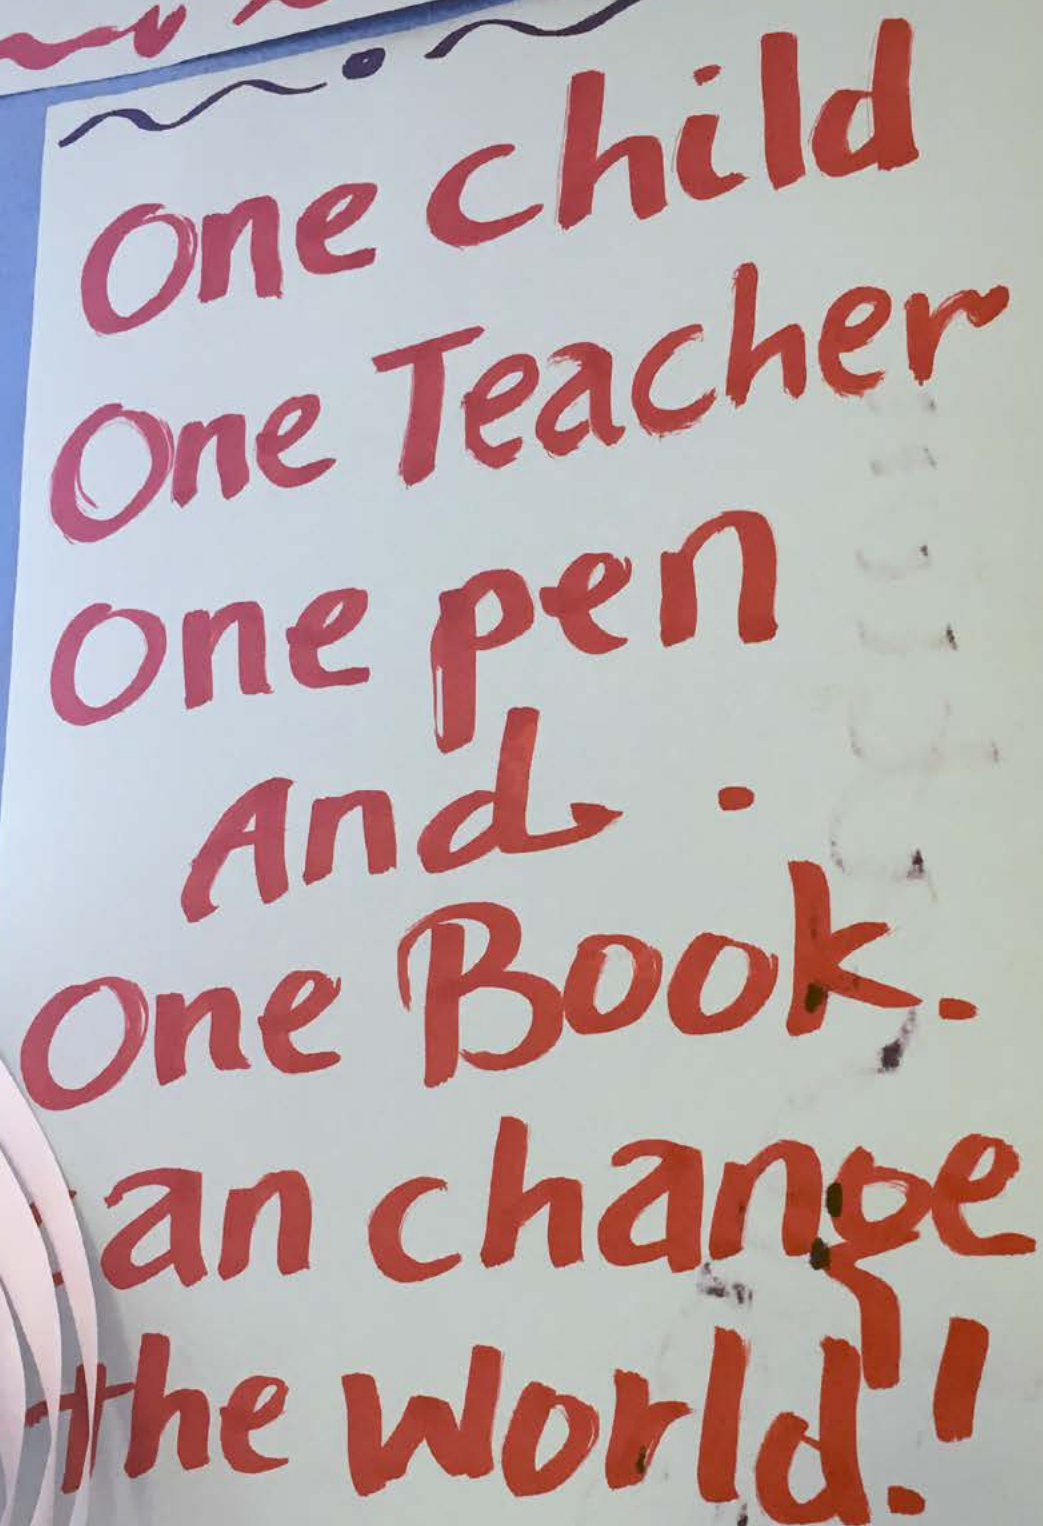 One child
One Teacher
One pen
And .
One Book.
an change
the world!